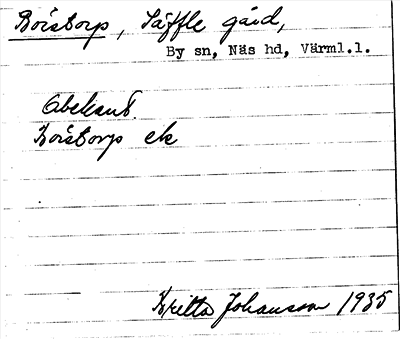 Boistorp, Säffle gård,
By sn, Näs hd, Värml.l.
Obekant.
Boistorps ek
Britta Johansson 1935